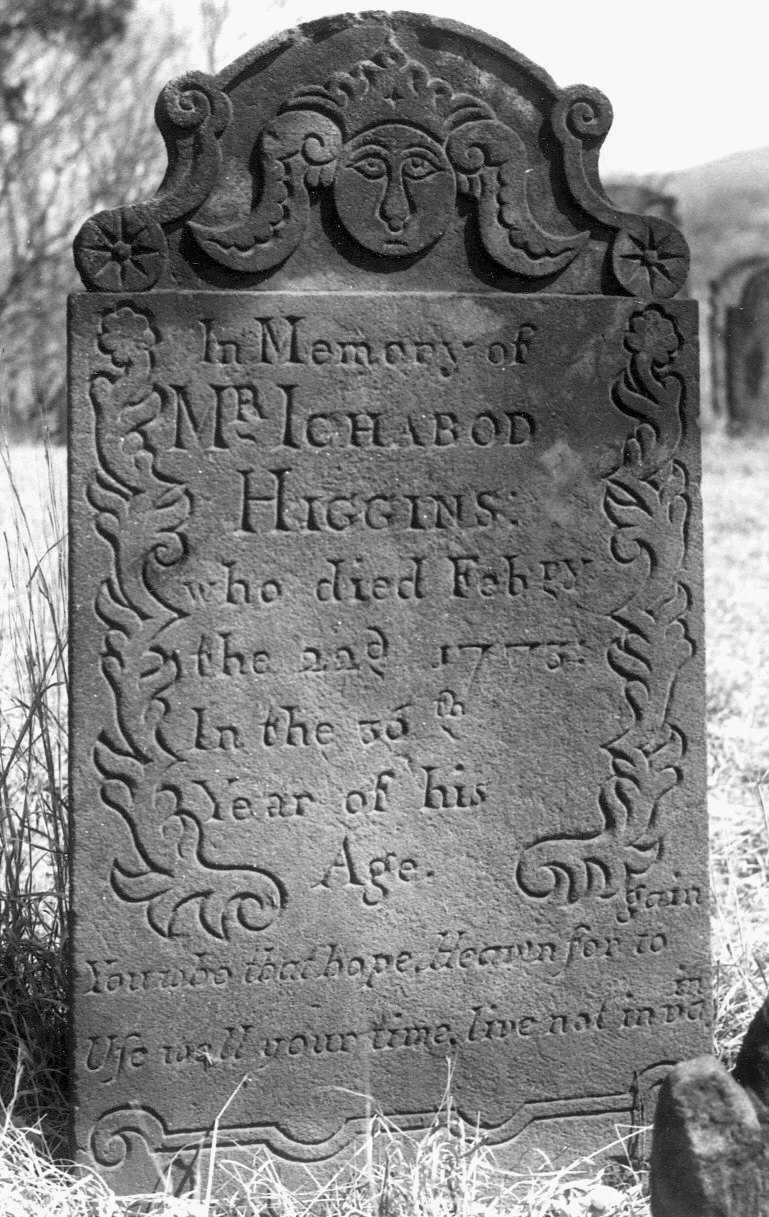 In Memory of
MR. ICHABOD
HIGGINS:
who died Febry
the 22d 1773:
In the 36th
Year of his
Age.
You who that hope, Heaven for to gain
Use well your time, live not in vain